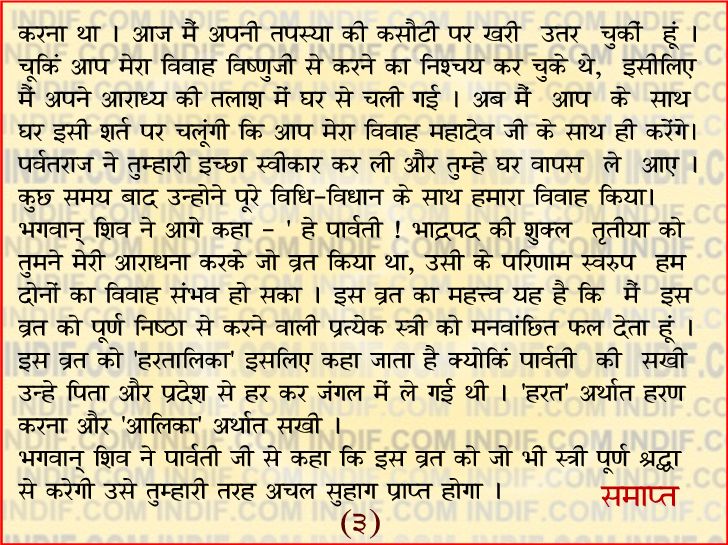 करना था । आज मैं अपनी तपस्या की कसौटी पर खरी उतर चुकीं हूं ।
चूकिं आप मेरा विवाह विष्णुजी से करने का निश्चय कर चुके थे, इसीलिए
मैं अपने आराध्य की तलाश में घर से चली गई । अब मैं आप के साथ
घर इसी शर्त पर चलूंगी कि आप मेरा विवाह महादेव जी के साथ ही करेंगे।
पर्वतराज ने तुम्हारी इच्छा स्वीकार कर ली और तुम्हे घर वापस ले आए ।
कुछ समय बाद उन्होने पूरे विधि-विधान के साथ हमारा विवाह किया।
भगवान् शिव ने आगे कहा - ' हे पार्वती ! भाद्रपद् की शुक्ल तृतीया को
तुमने मेरी आराधना करके जो व्रत किया था, उसी के परिणाम स्वरुप हम
दोनों का विवाह संभव हो सका । इस व्रत का महत्त्व यह है कि मैं इस
व्रत को पूर्ण निष्ठा से करने वाली प्रत्येक स्त्री को मनवांछित फल देता हूं ।
इस व्रत को 'हरतालिका' इसलिए कहा जाता है क्योकिं पार्वती की सखी
उन्हे पिता और प्रदेश से हर कर जंगल में ले गई थी । 'हरत' अर्थात हरण
करना और 'आलिका' अर्थात सखी ।
भगवान् शिव ने पार्वती जी से कहा कि इस व्रत को जो भी स्त्री पूर्ण श्रद्धा
से करेगी उसे तुम्हारी तरह अचल सुहाग प्राप्त होगा ।
समाप्त
(३)
INDIF.COM